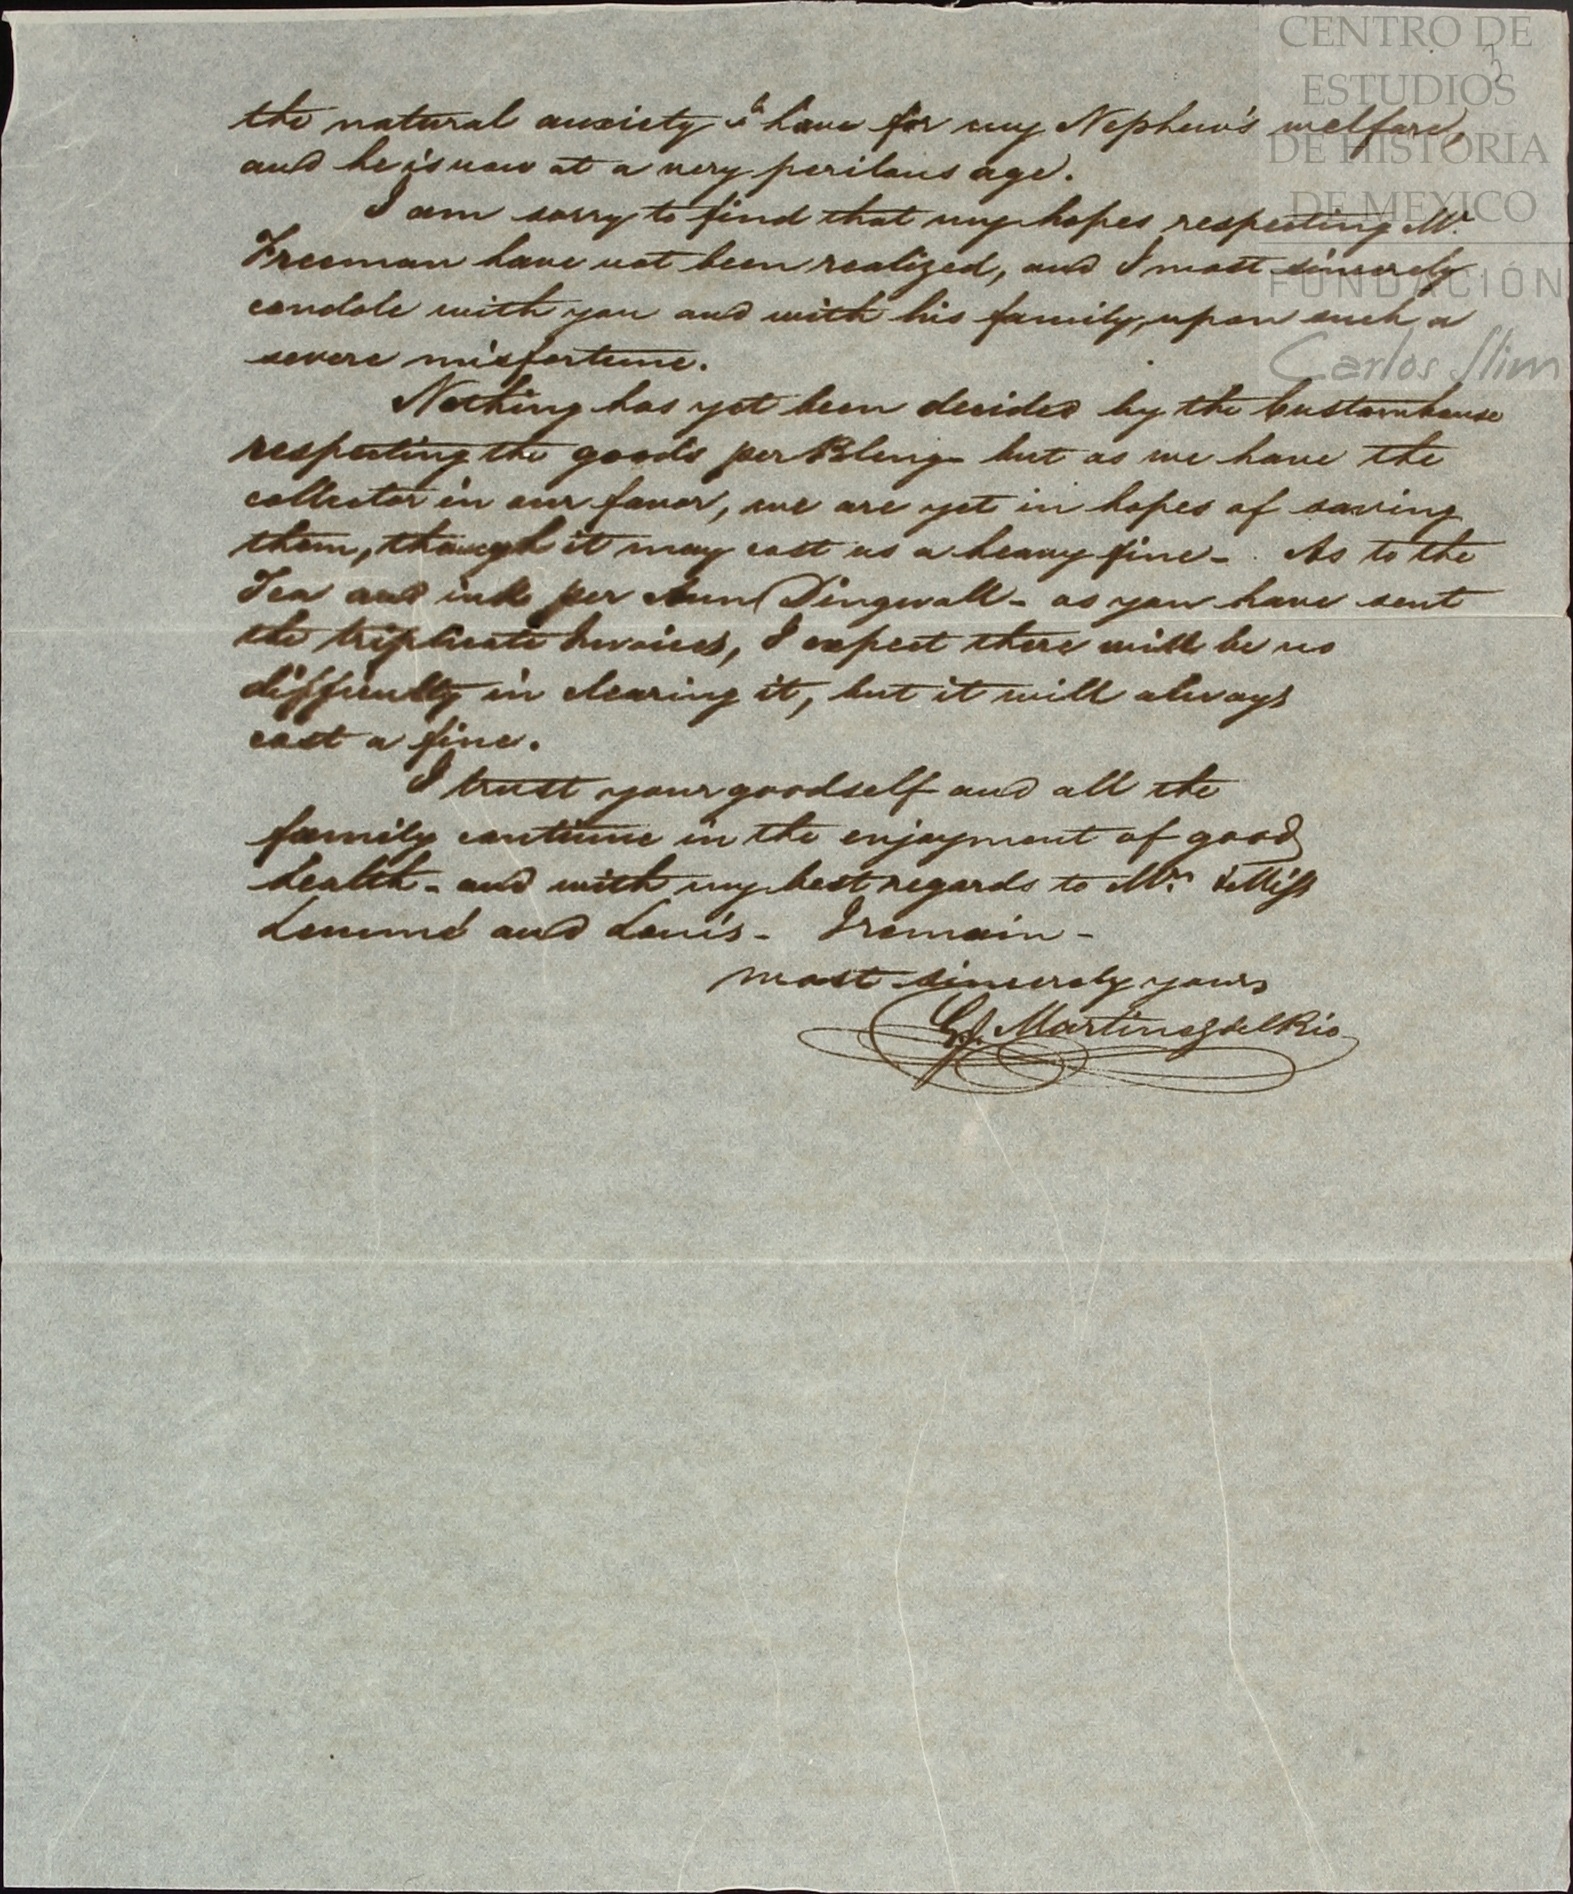 CENTRO DE
ESTUDIOS
DE HISTORIA
DE MEXICO
FUNDACIÓN
Carlos Slim
3
the natural anxiety I have for my Nephew's welfare,
and he is now at a very perilous age.
I am sorry to find that my hopes respecting Mr.
Freeman have not been realized, and I most sincerely
condole with you and with his family, upon such a
severe misfortune.
Nothing has yet been decided by the Customhouse
respecting the goods per Bleng - but as we have the
collector in our favor, we are yet in hopes of saving
them, though it may cost us a heavy fine - . As to the
Tea and ink per Ann Dingwall - as you have sent
the triplicate Invoices, I expect there will be no
difficulty in clearing it, but it will always
cost a fine.
I trust your goodself and all the
family continue in the enjoyment of good
health - and with my best regards to Mrs. & Miss
Lemmé and Louis - I remain -
most sincerely yours
G. J. Martinez del Rio